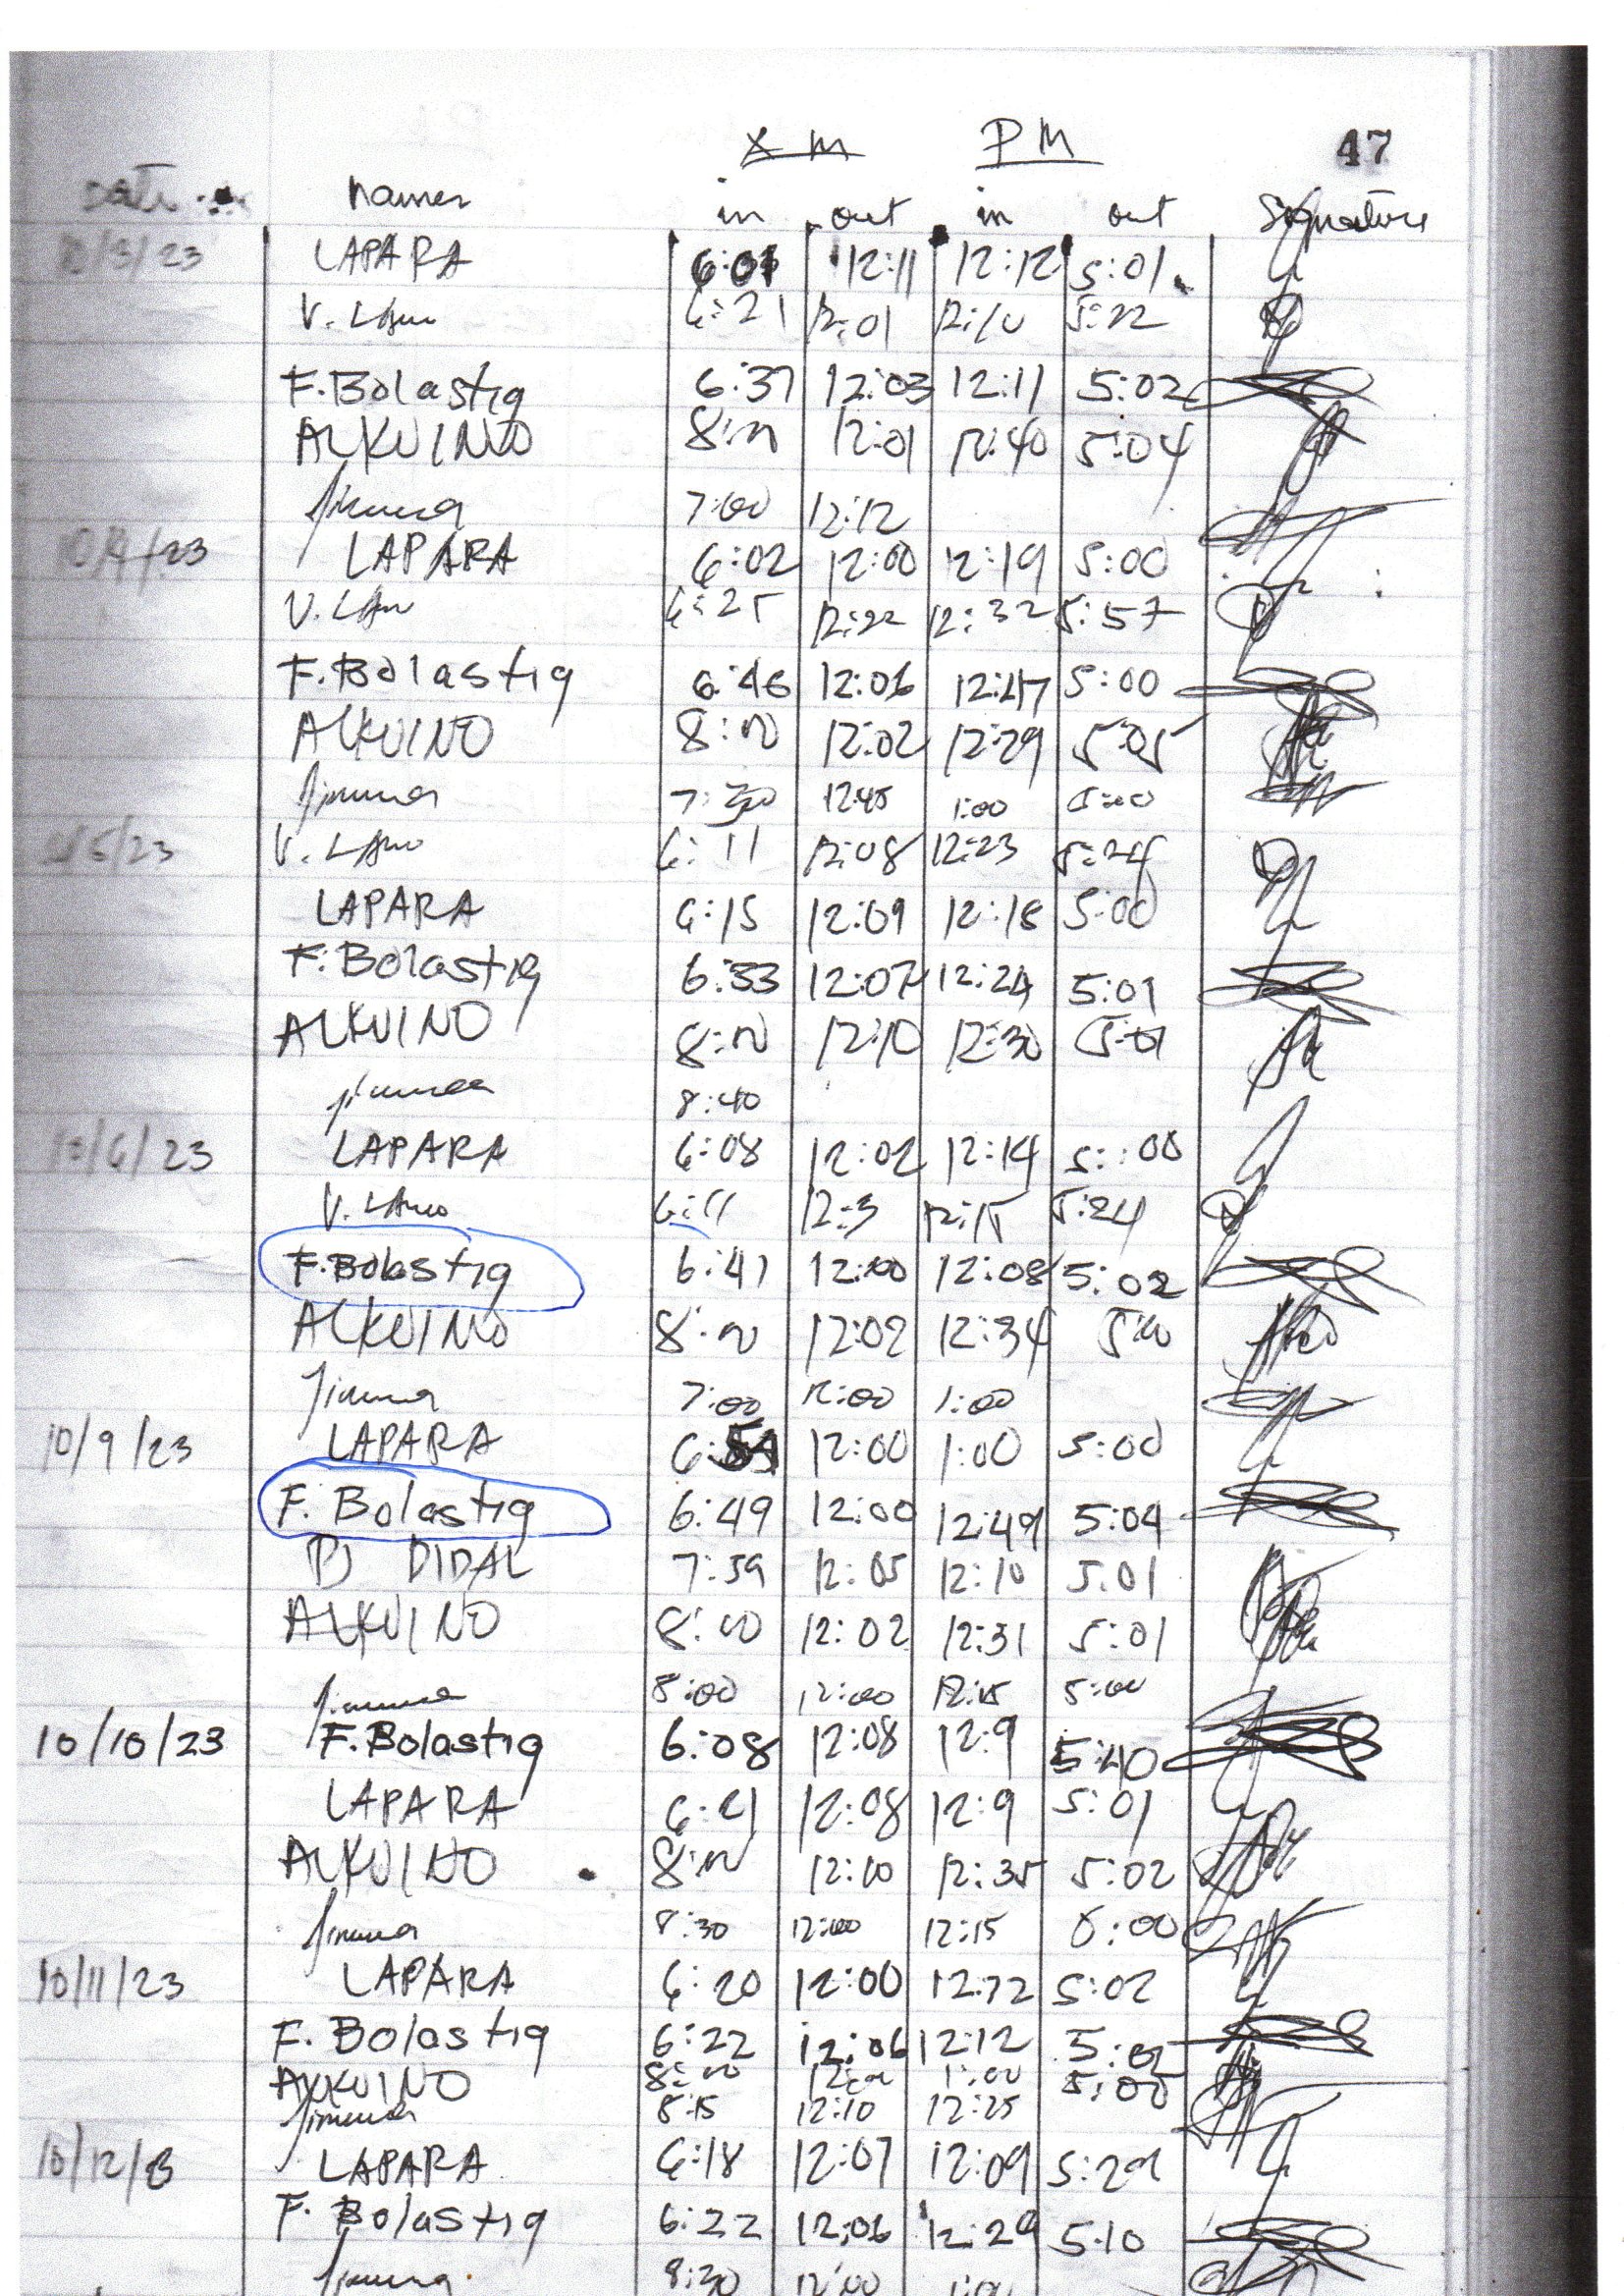 AM PM 47
Date Names in out in out Signature
10/3/23 LAPARA 6:01 12:11 12:12 5:01
V. LAno 6:21 12:01 12:10 5:22
F. Bolastig 6:37 12:03 12:11 5:02
ALKUINO 8:00 12:01 12:40 5:04
7:00 12:12
10/4/23 LAPARA 6:02 12:00 12:19 5:00
V. LAno 6:25 12:22 12:32 5:57
F. Bolastig 6:46 12:06 12:47 5:00
ALKUINO 8:00 12:02 12:29 5:05
7:30 12:45 1:00 5:00
10/5/23 V. LAno 6:11 12:08 12:23 5:24
LAPARA 6:15 12:09 12:18 5:00
F. Bolastig 6:33 12:07 12:24 5:01
ALKUINO 8:00 12:10 12:30 5:01
8:40
10/6/23 LAPARA 6:08 12:02 12:14 5:00
V. LAno 6:11 12:3 12:15 5:24
F. Bolastig 6:41 12:00 12:08 5:02
ALKUINO 8:00 12:02 12:34 5:00
7:00 12:00 1:00
10/9/23 LAPARA 12:00 1:00 5:00
F. Bolastig 6:49 12:00 12:49 5:04
PJ DIDAL 7:59 12:05 12:10 5:01
ALKUINO 8:00 12:02 12:31 5:01
8:00 12:00 12:15 5:00
10/10/23 F. Bolastig 6:08 12:08 12:9 5:40
LAPARA 6:21 12:08 12:9 5:01
ALKUINO 8:00 12:10 12:35 5:02
8:30 12:00 12:15 5:00
10/11/23 LAPARA 6:20 12:00 12:12 5:02
F. Bolastig 6:22 12:06 12:12 5:02
ALKUINO 8:00 12:00 1:00 5:00
8:15 12:10 12:25
10/12/23 LAPARA 6:18 12:07 12:09 5:29
F. Bolastig 6:22 12:06 12:29 5:10
8:30 12:00 1:00